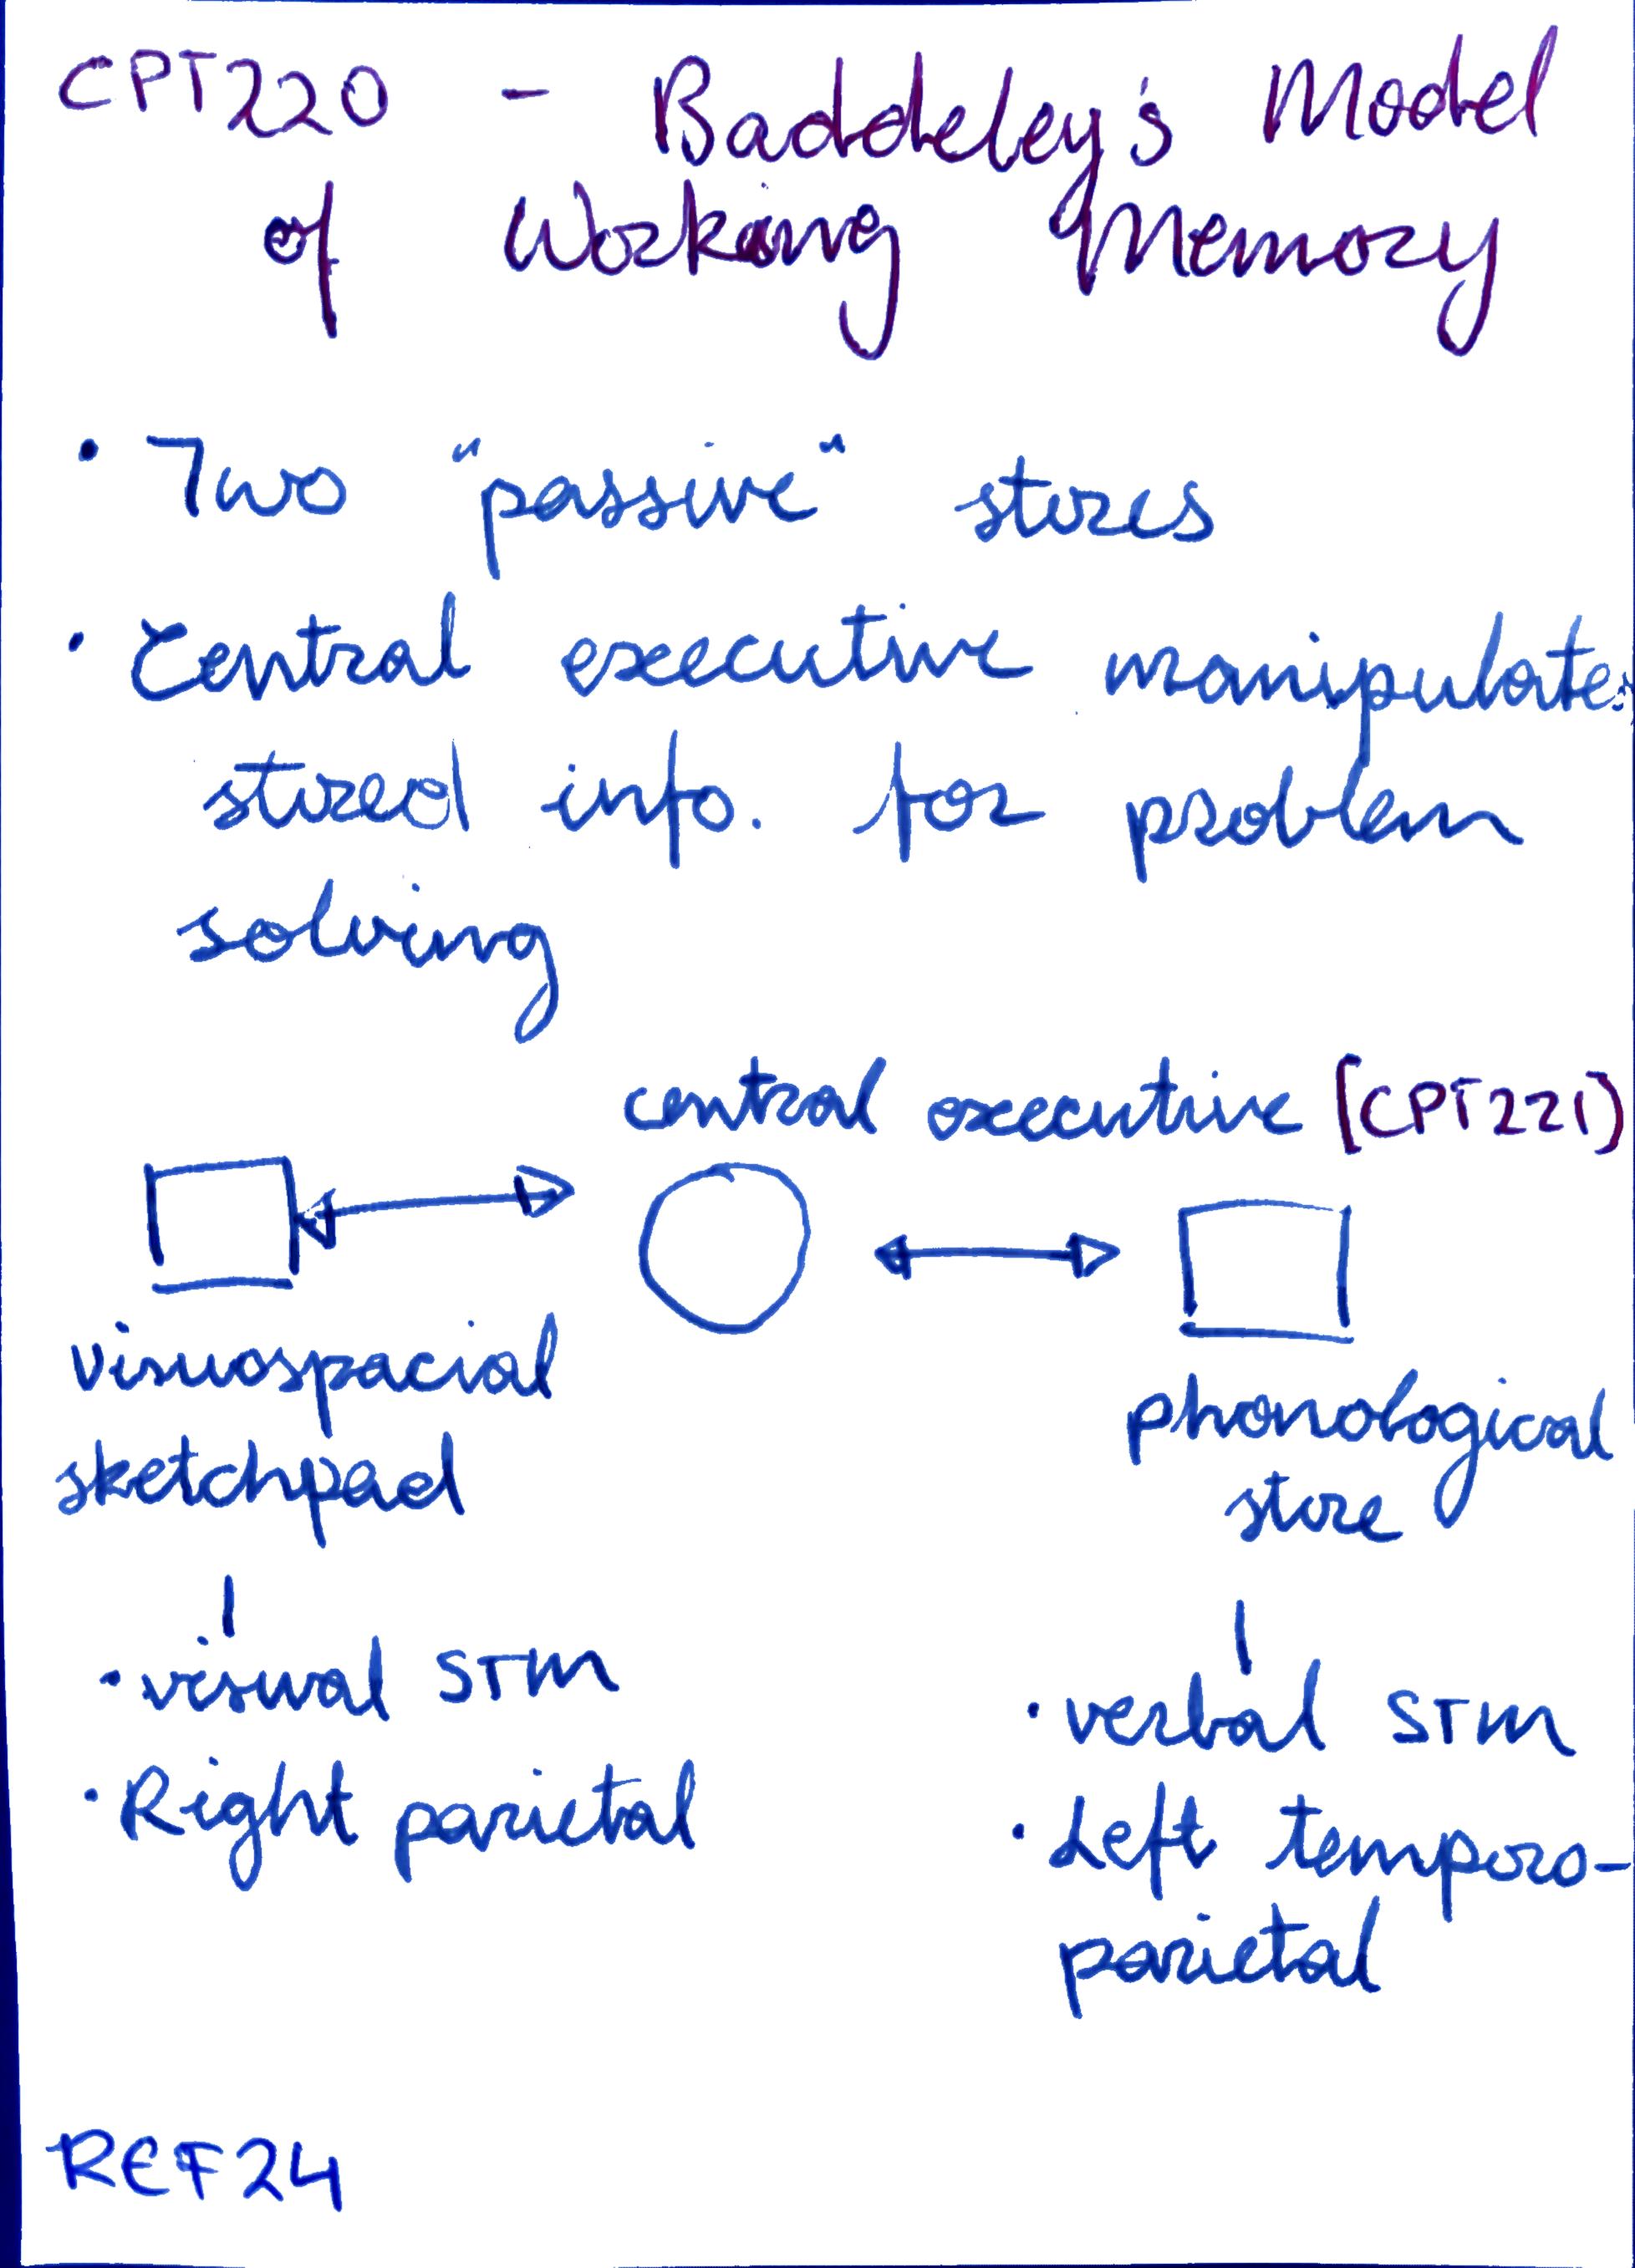 CPT220 - Baddeley's Model
of Working Memory
• Two "passive" stores
• Central executive manipulates
stored info. for problem
solving
central executive [CPT221)
visuospacial
sketchpad
phonological
store
• visual STM
• Right parietal
• verbal STM
• Left temporo-
parietal
REF24